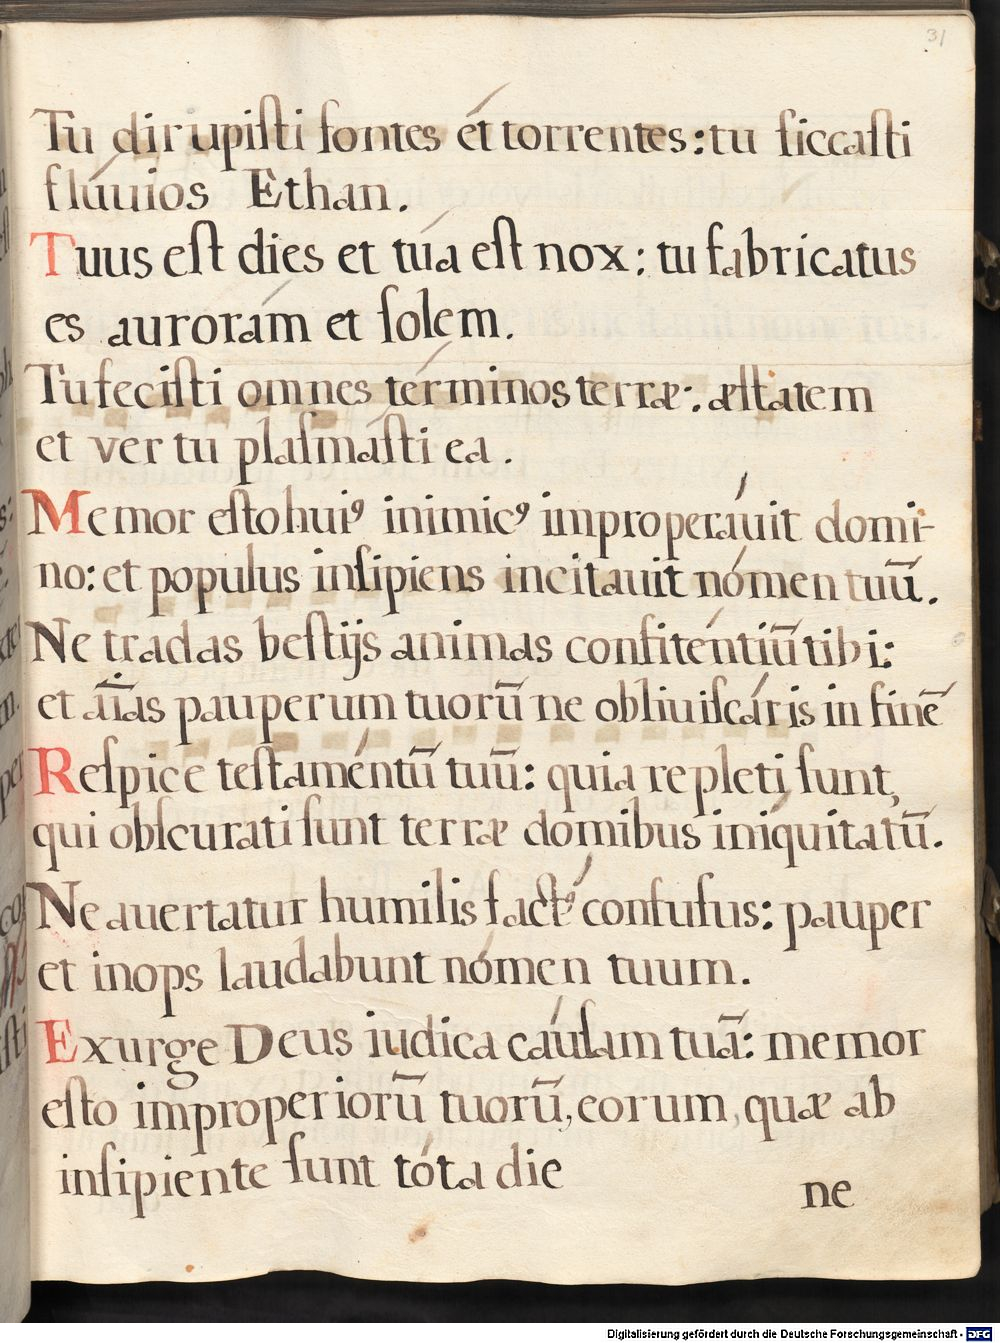 31
Tu dirupiſti fontes ét torrentes: tu ſiccaſti
flúuios Ethan.
Tuus eſt dies et túa eſt nox: tu fabricatus
es aurorám et ſolem.
Tu feciſti omnes términos terræ: æſtatem
et ver tu plaſmáſti ea.
Memor eſto huiꝰ inimicꝰ improperáuit domi-
no: et populus inſipiens incitauit nómen tuū.
Ne tradas beſtijs animas confiténtiū tibi:
et aīas pauperum tuorū ne obliuiſcáris in finē
Reſpice teſtaméntū tuū: quia repleti ſunt,
qui obſcurati ſunt terræ domibus iníquitatū.
Ne auertatur humilis factꝰ confuſus: pauper
et inops laudabunt nómen tuum.
Exurge Deus iudica cáuſam tuā: memor
eſto improperiorū tuorū, eorum, quæ ab
inſipiente ſunt tóta die
ne
Digitalisierung gefördert durch die Deutsche Forschungsgemeinschaft - DFG